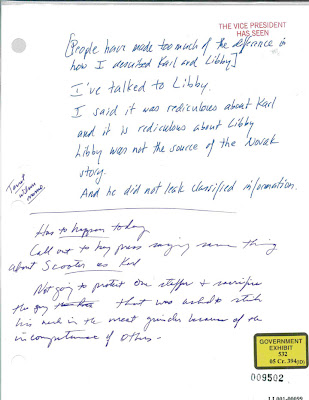 THE VICE PRESIDENT
HAS SEEN
[People have made too much of the difference in
how I described Karl and Libby]
I've talked to Libby.
I said it was rediculous about Karl
and it is rediculous about Libby
Libby was not the source of the Novak
story.
And he did not leak classified information.
Has to happen today
Call out to key press saying same thing
about Scooter as Karl
Not going to protect one staffer + sacrifice
the guy that was asked to stick
his neck in the meat grinder because of the
incompetence of others -
GOVERNMENT
EXHIBIT
532
05 Cr. 394
009502